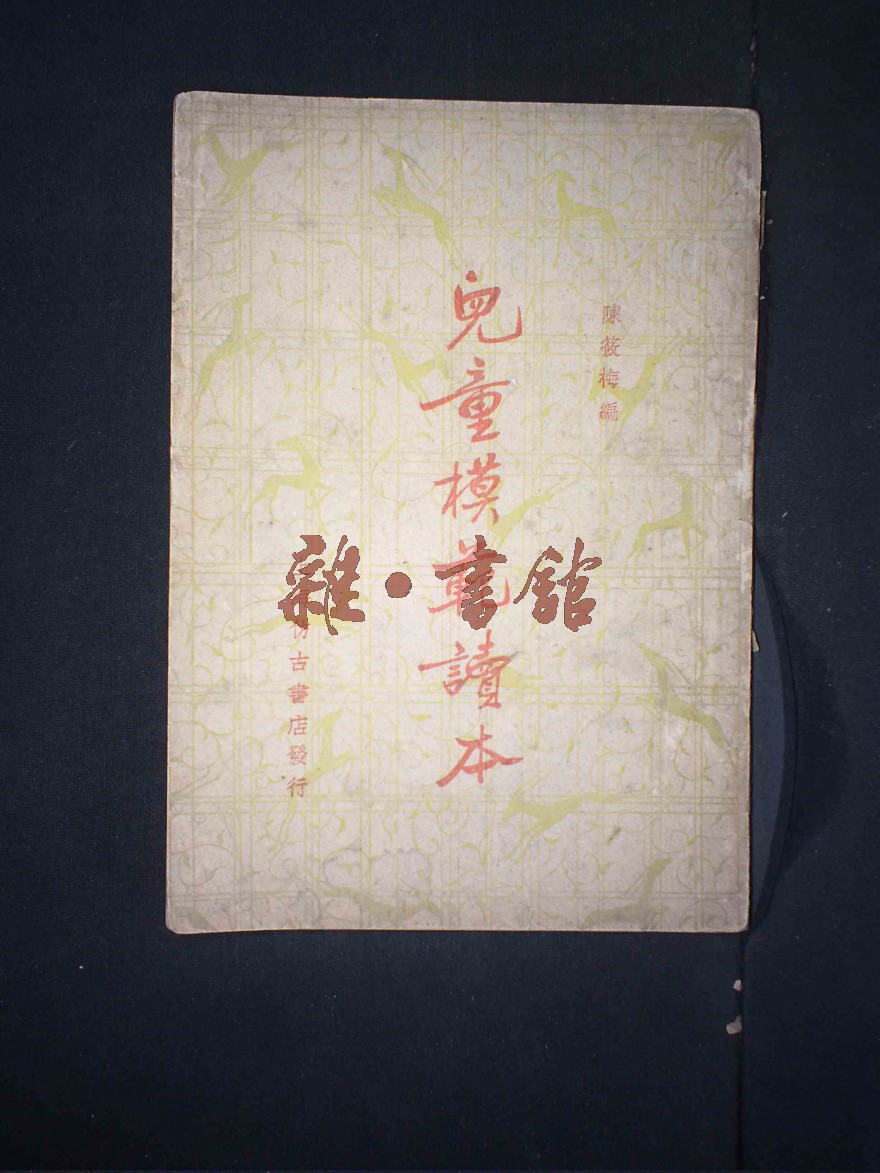 陳筱梅編
兒童模範讀本
仿古書店發行
雜·書館